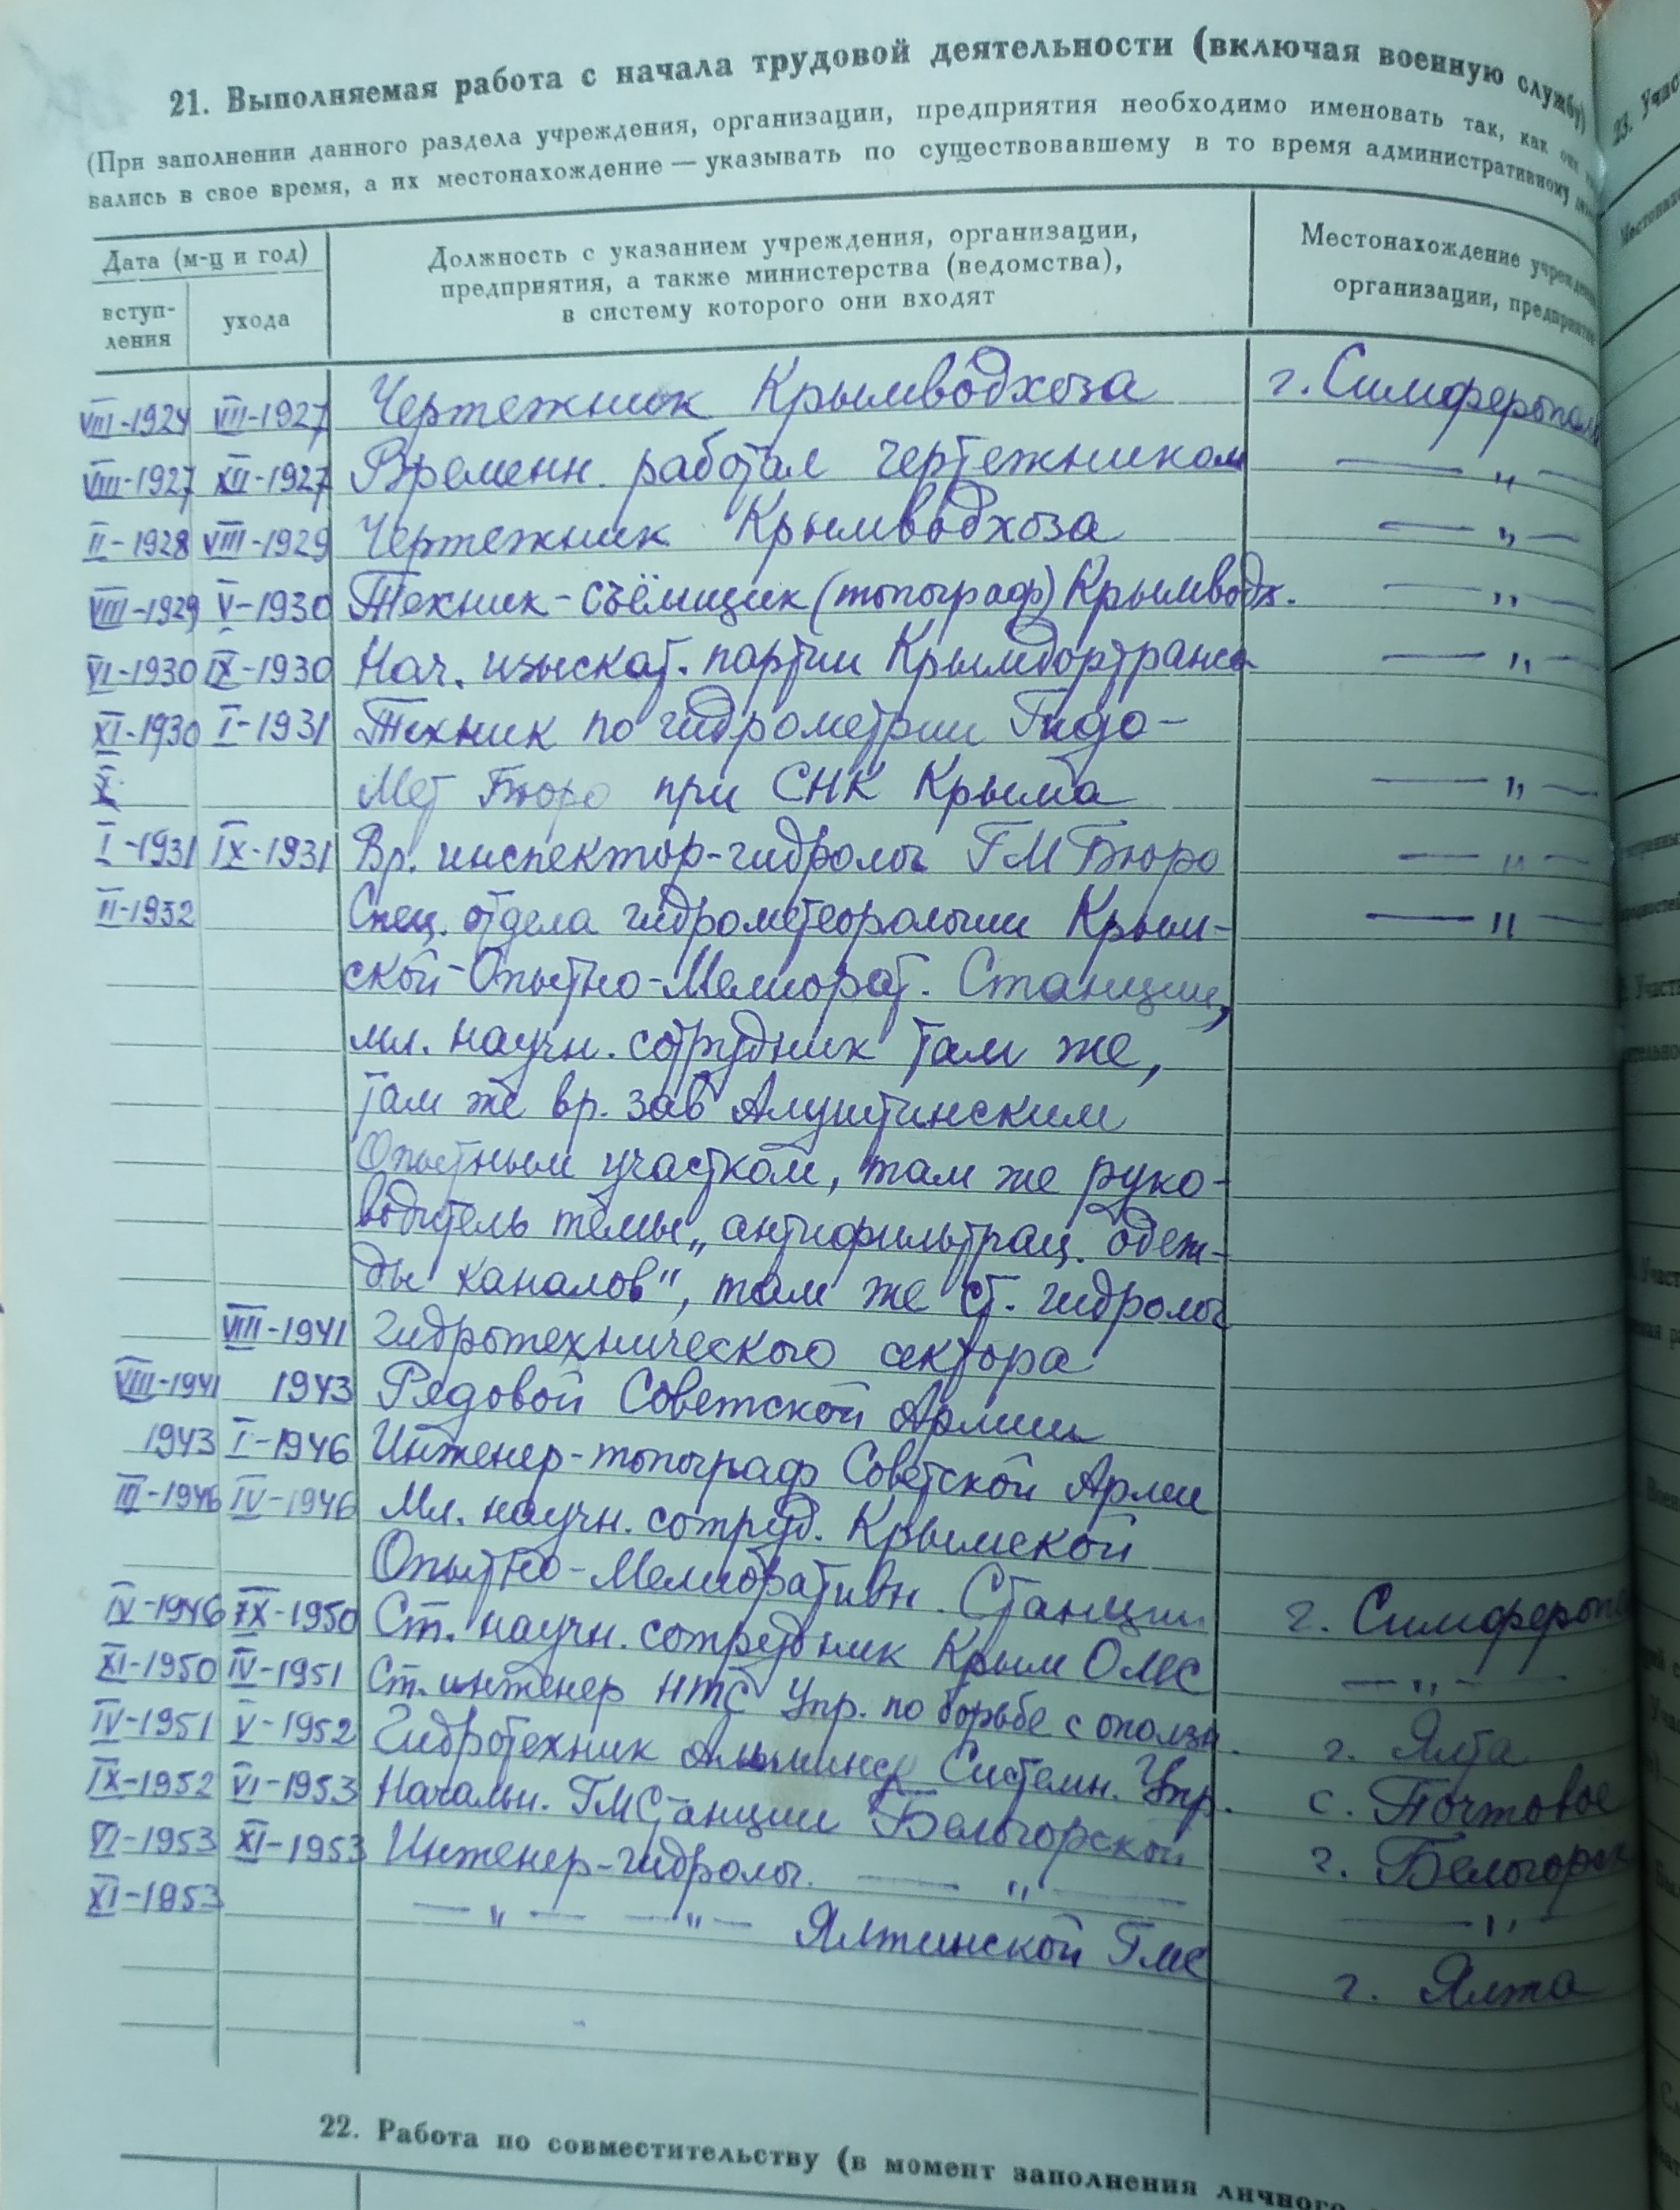 21. Выполняемая работа с начала трудовой деятельности (включая военную службу)
(При заполнении данного раздела учреждения, организации, предприятия необходимо именовать так, как они
вались в свое время, а их местонахождение — указывать по существовавшему в то время административному
Дата (м-ц и год)
вступ-
ления
ухода
Должность с указанием учреждения, организации,
предприятия, а также министерства (ведомства),
в систему которого они входят
Местонахождение
организации,
VIII-1924 VII-1927 Чертежник Крымводхоза г. Симферополь
VIII-1927 XII-1927 Временн. работал чертежником — " —
II-1928 VIII-1929 Чертежник Крымводхоза — " —
VIII-1929 V-1930 Техник-съёмщик (топограф) Крымводх. — " —
VI-1930 IX-1930 Нач. изыскат. партии Крымдортранса — " —
XI-1930 I-1931 Техник по гидрометрии Гидо-
X Мет Бюро при СНК Крыма — " —
I-1931 IX-1931 Вр. инспектор-гидролог ГМ Бюро — " —
II-1932 Спец. отдела гидрометеорологии Крым- — " —
ской-Опытно-Мелиорат. Станции,
мл. научн. сотрудник там же,
там же вр. зав Алуштинским
Опытным участком, там же руко-
водитель темы „антифильтрац. одеж-
ды каналов", там же ст. гидролог
VIII-1941 гидротехнического сектора
VIII-1941 1943 Рядовой Советской Армии
1943 I-1946 Инженер-топограф Советской Армии
III-1946 IV-1946 Мл. научн. сотруд. Крымской
Опытно-Мелиоративн. Станции г. Симферополь
IV-1946 IX-1950 Ст. научн. сотрудник Крым ОМС — " —
XI-1950 IV-1951 Ст. инженер НТС Упр. по борьбе с оползн. г. Ялта
IV-1951 V-1952 Гидротехник Альминск Системн. Упр. с. Почтовое
IX-1952 VI-1953 Начальн. ГМСтанции Белогорской г. Белогорск
VI-1953 XI-1953 Инженер-гидролог. — " — — " —
XI-1953 — " — — " — Ялтинской Гмс г. Ялта
22. Работа по совместительству (в момент заполнения личного